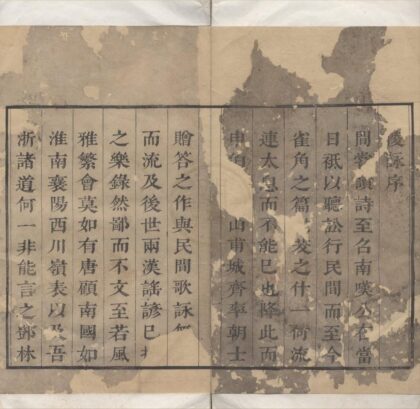 後詠序
間嘗讀詩至召南嘆公在當
日祇以聽訟行民間而至今
雀角之篇 茇之什一何流
連太息而不能已也降此而
申甫 山甫城齊率朝士
贈答之作與民間歌詠無
而流及後世兩漢謠諺已
之樂錄然鄙而不文至若風
雅繁會莫如有唐顧南國如
淮南襄陽西川嶺表以及吾
浙諸道何一非能言之鄧林